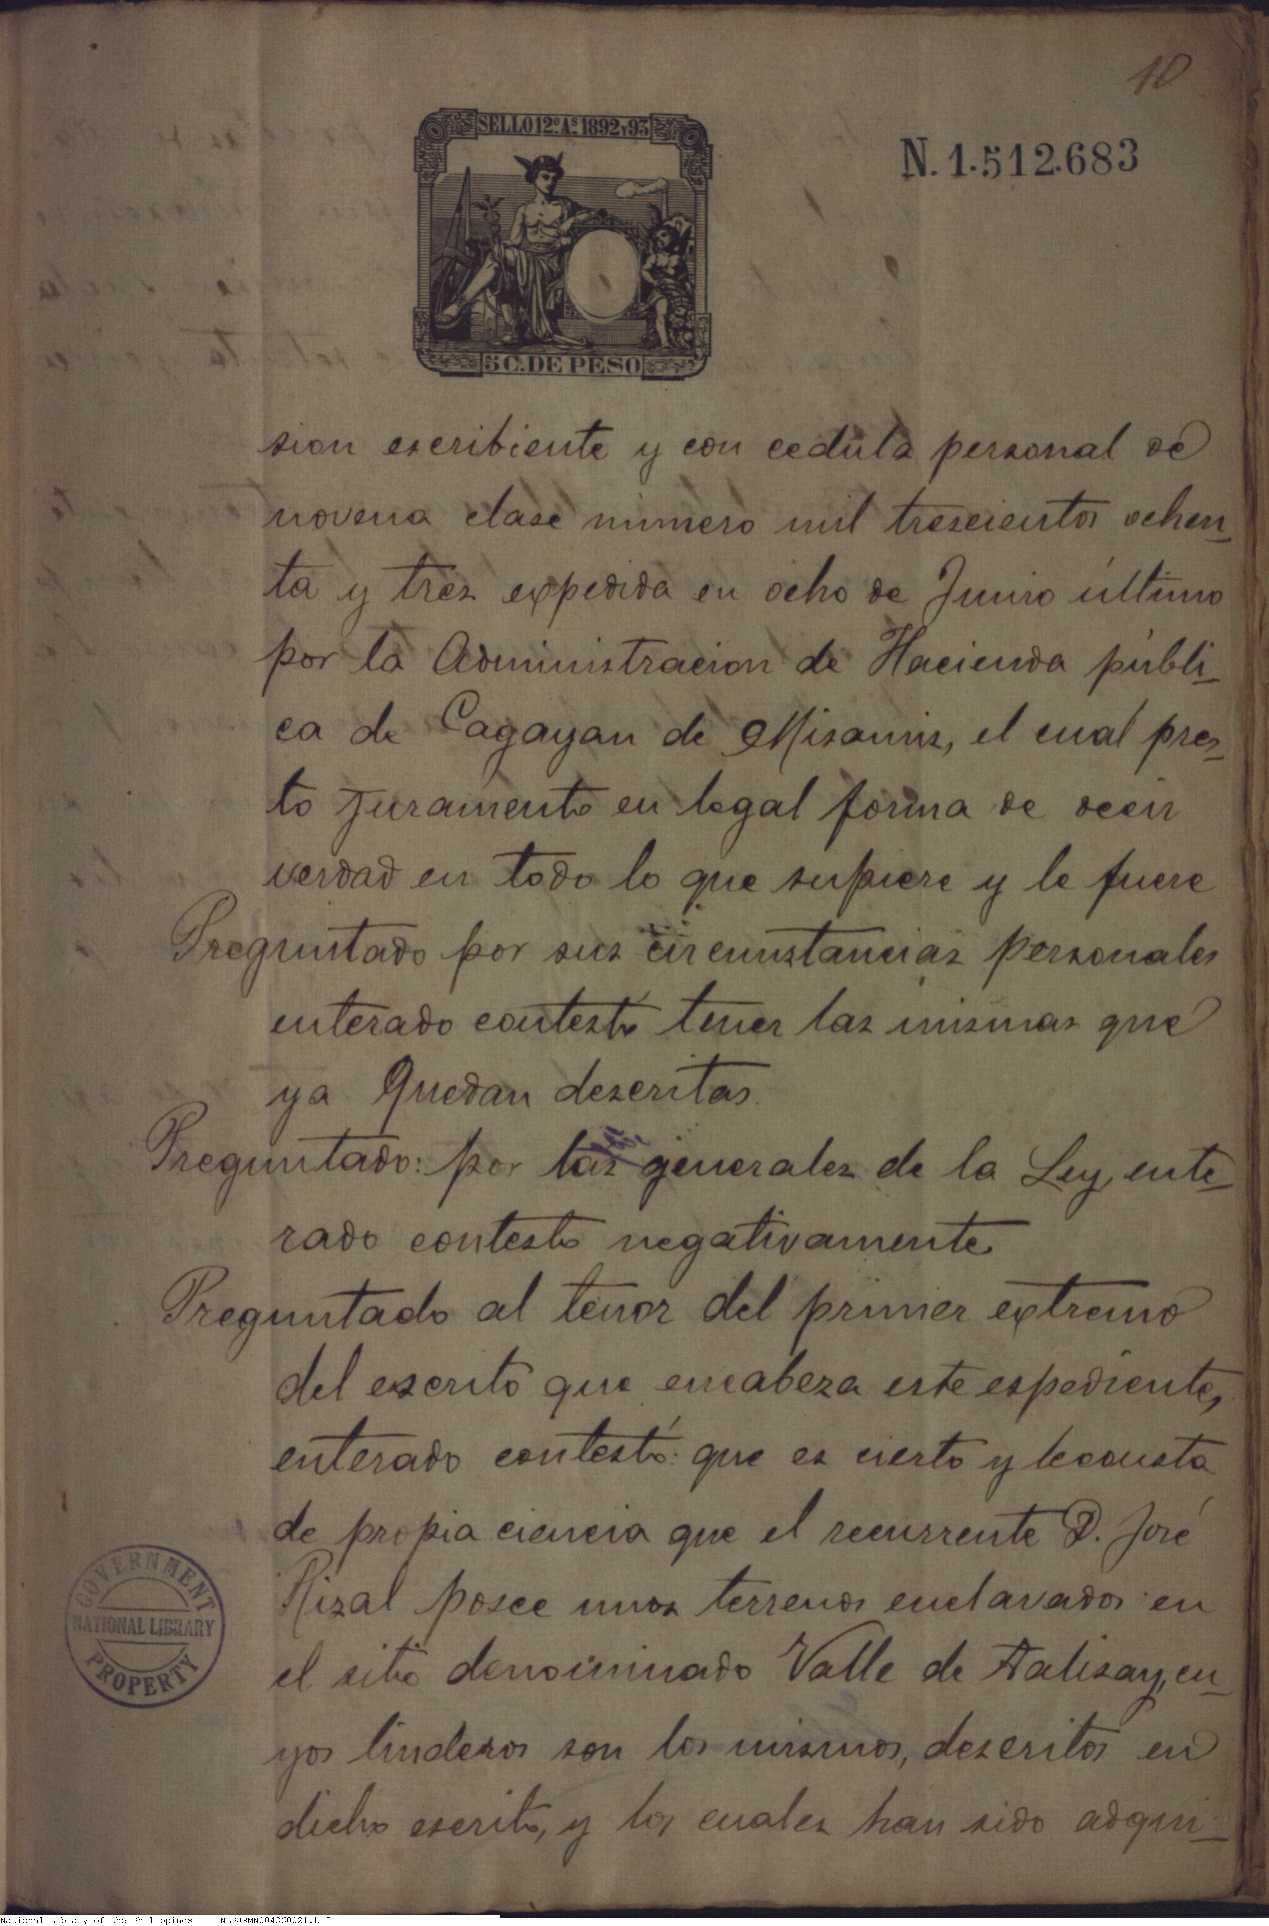 10
SELLO 12º As 1892 y 93
N. 1.512.683
5 C. DE PESO
sion escribiente y con cedula personal de
novena clase número mil trescientos ochen_
ta y tres expedida en ocho de Junio último
por la Administracion de Hacienda públi_
ca de Cagayan de Misamis, el cual pres_
to juramento en legal forma de decir
verdad en todo lo que supiere y le fuere
Preguntado por sus circunstancias personales
enterado contestó tener las mismas que
ya quedan descritas.
Preguntado: por las generales de la Ley, ente_
rado contestó negativamente.
Preguntado al tenor del primer extremo
del escrito que encabeza este espediente,
enterado contestó: que es cierto y le consta
de propia ciencia que el recurrente D. José
Rizal posee unos terrenos enclavados en
el sitio denominado Valle de Talisay, cu_
yos linderos son los mismos, descritos en
dicho escrito, y los cuales han sido adqui_
GOVERNMENT
NATIONAL LIBRARY
PROPERTY
National Library of the Philippines